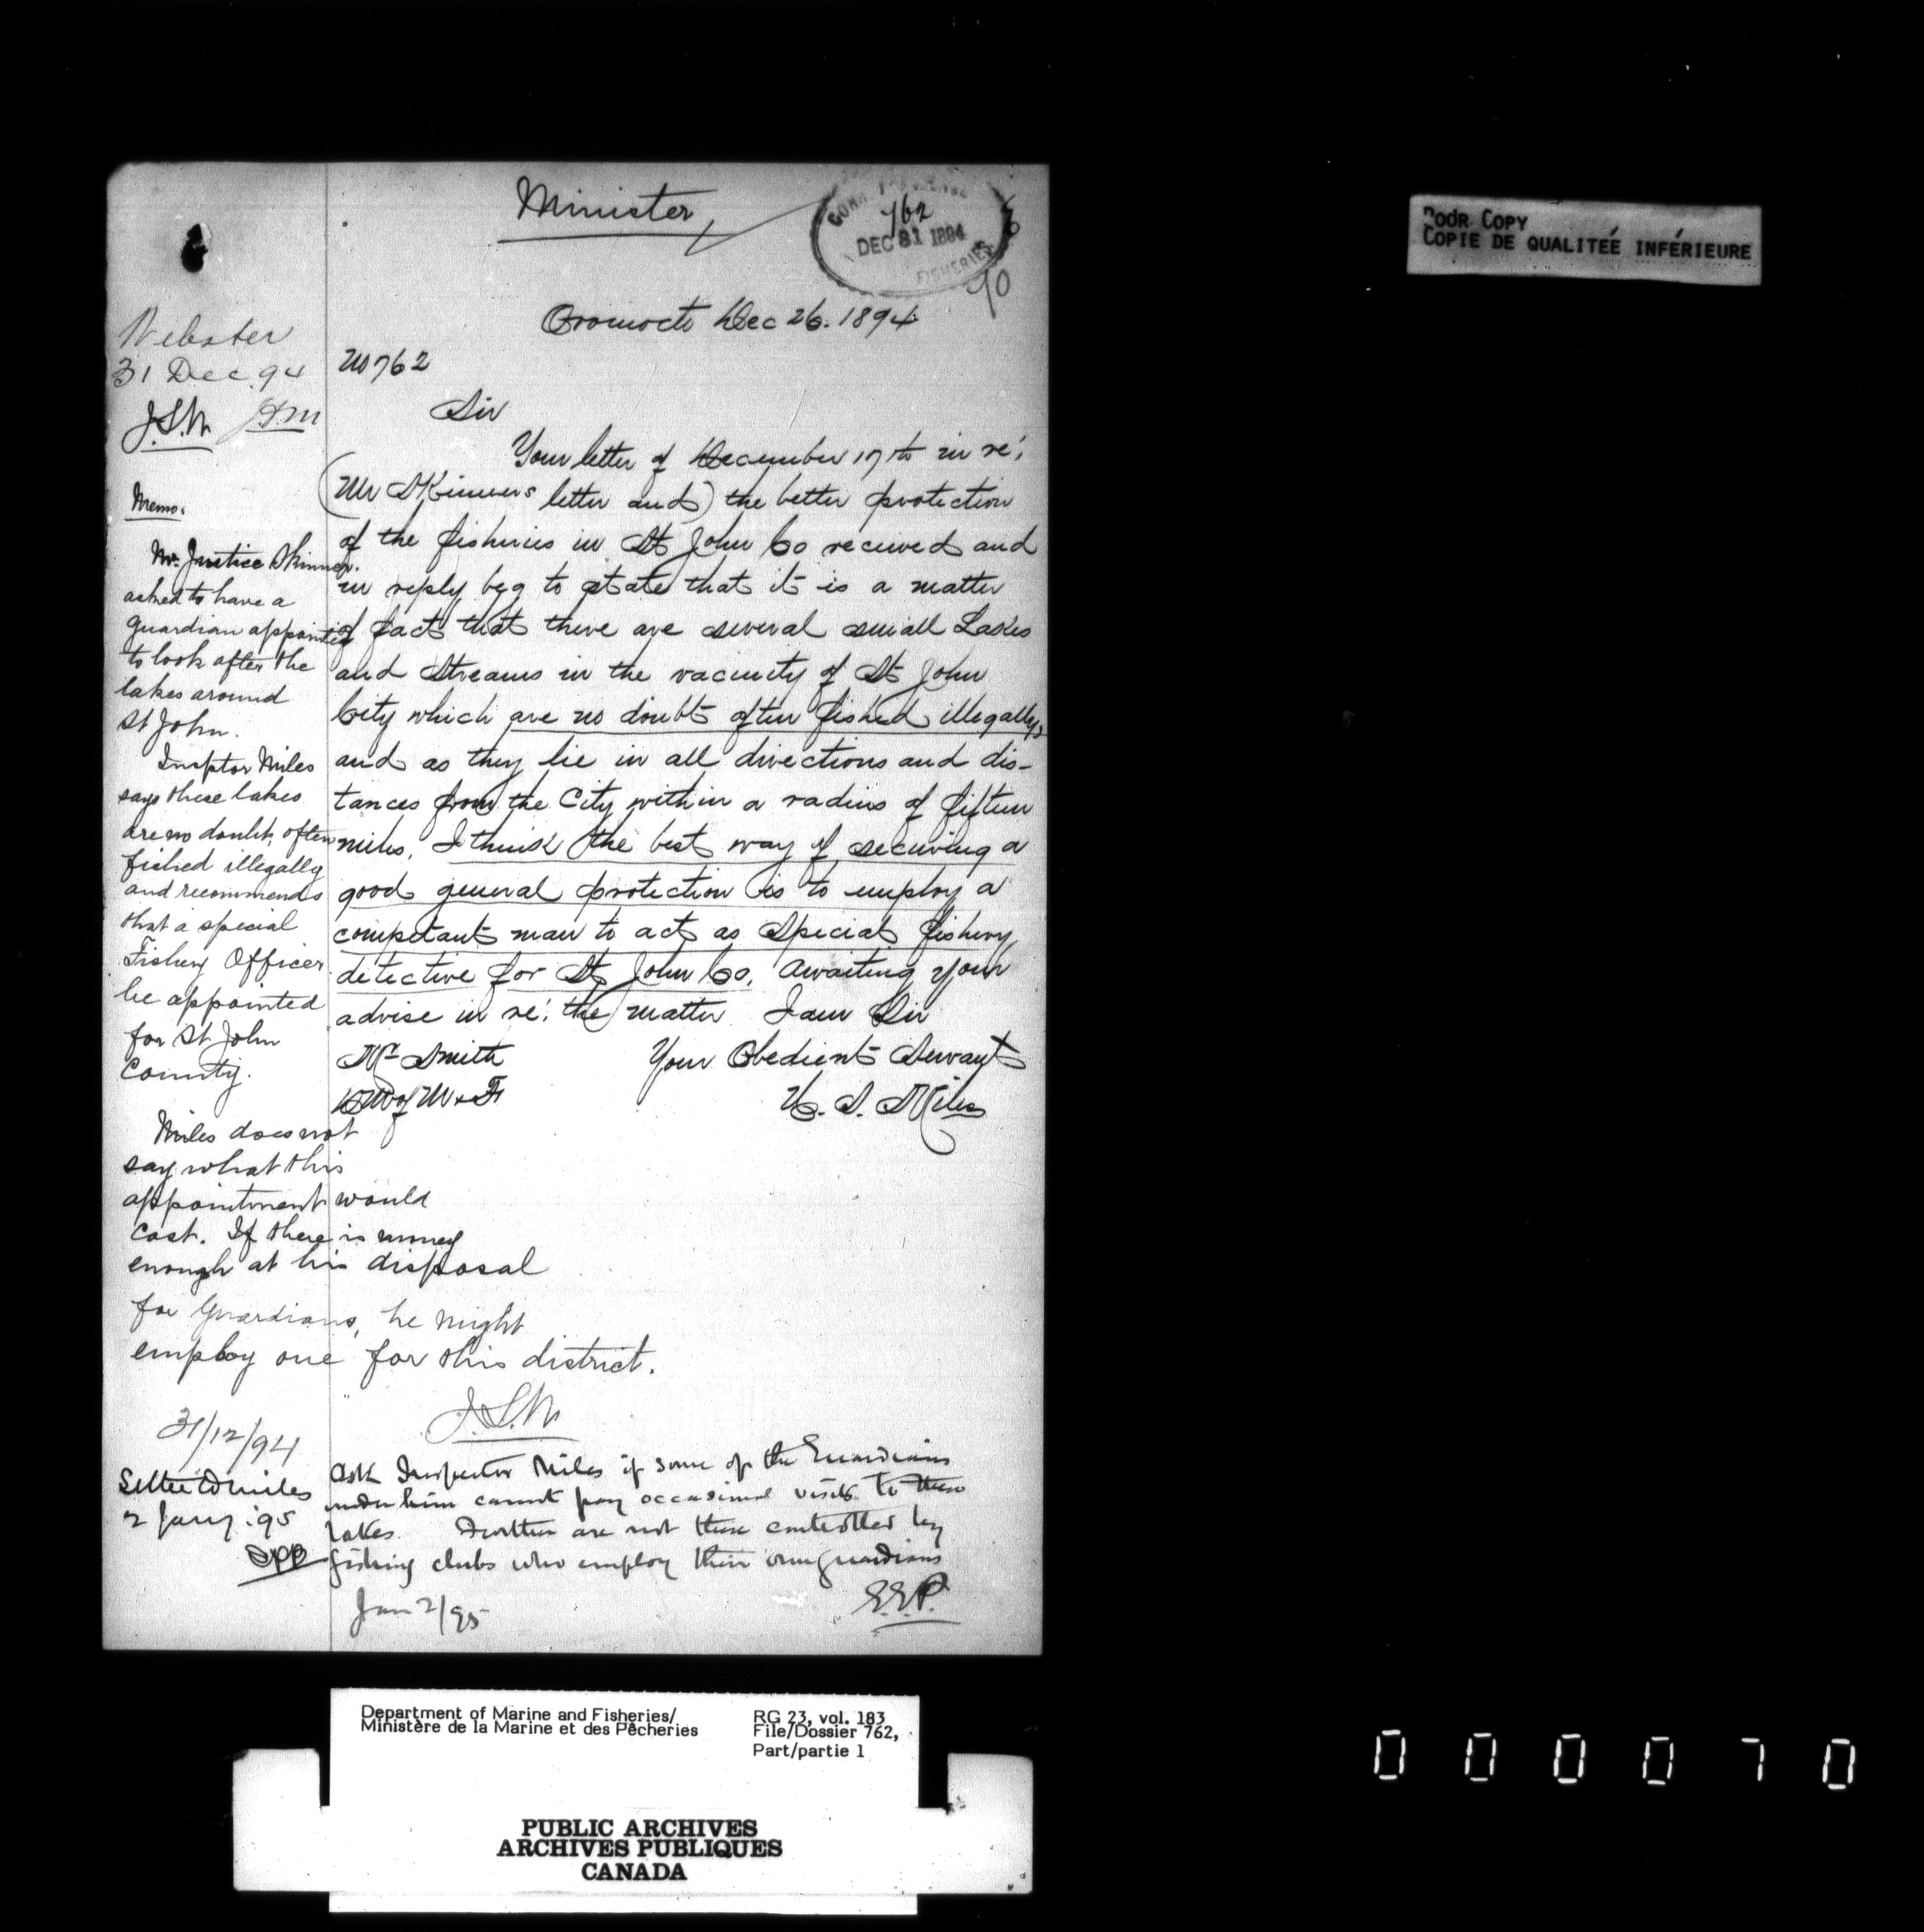 Minister
762
DEC 31 1894
FISHERIES
70
Oromocto Dec 26. 1894
No 762
Sir
Your letter of December 17th in re;
(Mr Skinners letter and) the better protection
of the fisheries in St John Co received and
in reply beg to state that it is a matter
of fact that there are several small Lakes
and Streams in the vacinity of St John
City which are no doubt often fished illegally,
and as they lie in all directions and dis-
tances from the City within a radius of fifteen
miles, I think the best way of securing a
good general protection is to employ a
competant man to act as Special fishery
detective for St John Co. Awaiting your
advise in re; the matter I am Sir
Your Obedient Servant
Mr Smith
DM of M & F
Miles
Webster
31 Dec. 94
J.S.W.
Memo.
Mr. Justice Skinner
asked to have a
guardian appointed
to look after the
lakes around
St John.
Insptor Miles
says these lakes
are no doubt, often
fished illegally
and recommends
that a special
Fishery Officer
be appointed
for St John
County.
Miles does not
say what this
appointment would
cost. If there is money
enough at his disposal
for Guardians, he might
employ one for this district.
J.S.W.
31/12/94
Letter to Miles
2 Jany. 95
Ask Inspector Miles if some of the Guardians
under him cannot pay occasional visits to these
lakes. Further are not these controlled by
fishing clubs who employ their own guardians
E.E.P.
Jan 2/95
Poor Copy
Copie de qualiteé inférieure
Department of Marine and Fisheries/
Ministère de la Marine et des Pêcheries
RG 23, vol. 183
File/Dossier 762,
Part/partie 1
PUBLIC ARCHIVES
ARCHIVES PUBLIQUES
CANADA
000070